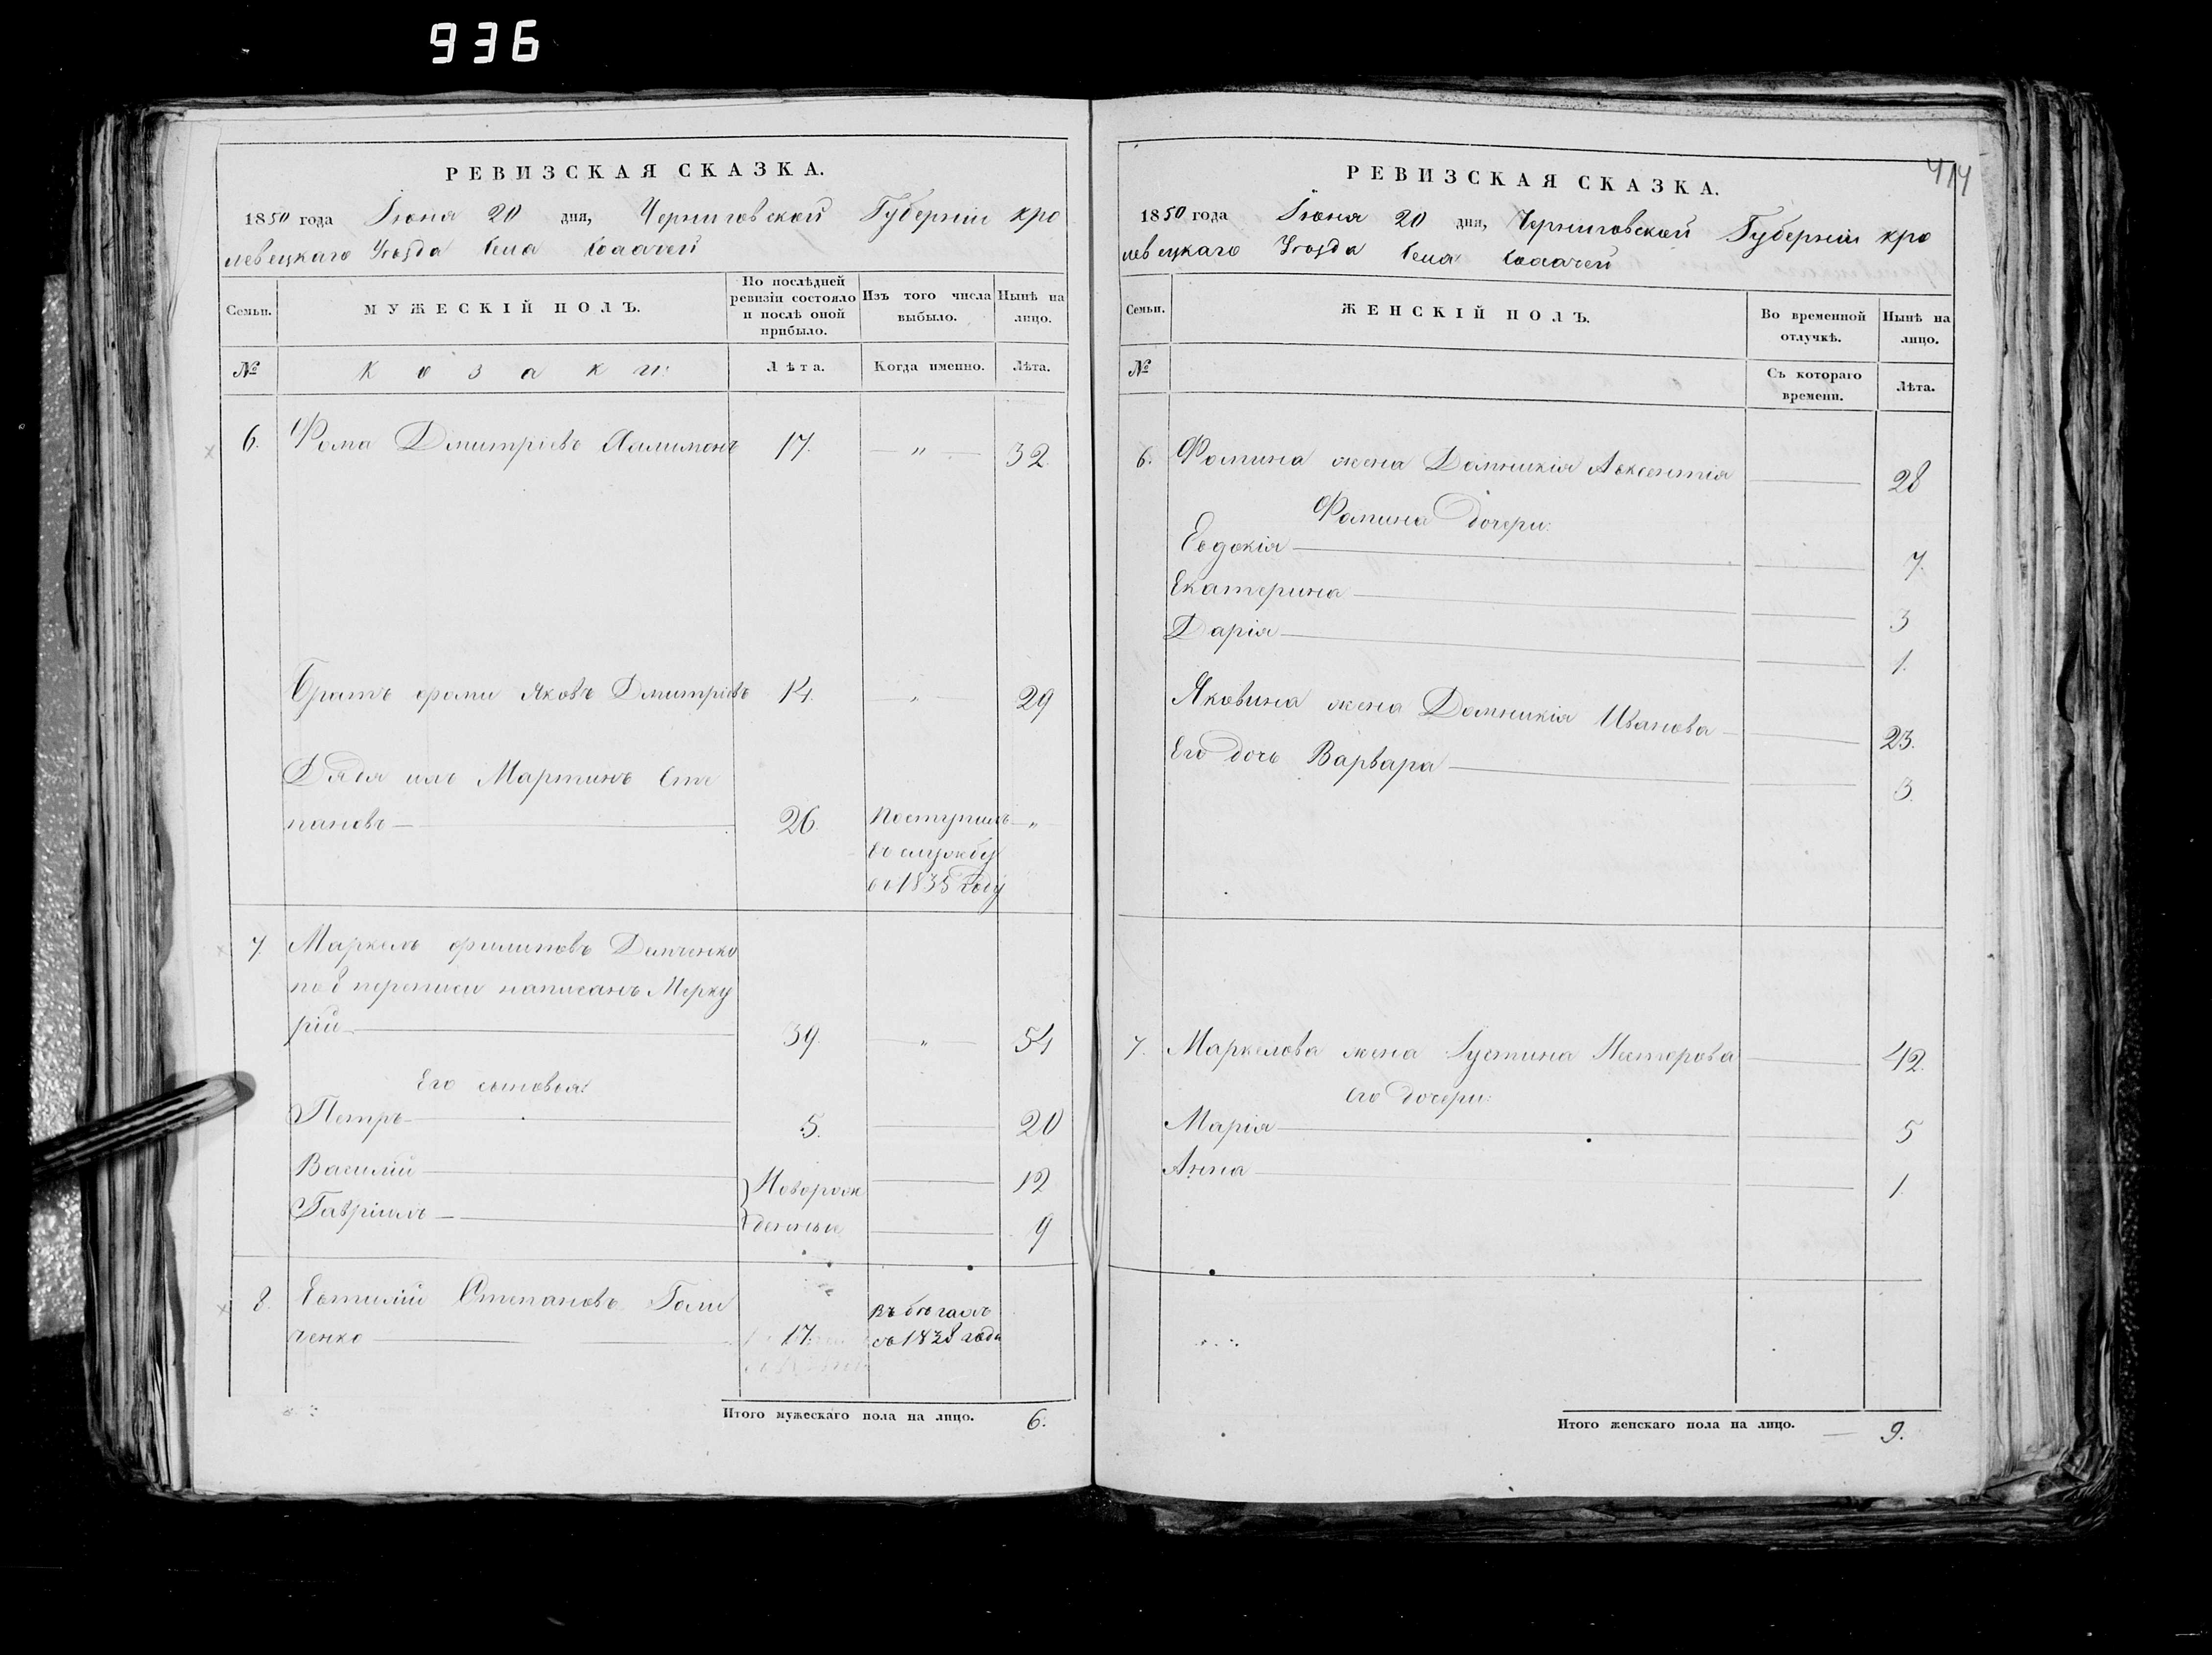 936
РЕВИЗСКАЯ СКАЗКА.
1850 года Iюня 20 дня, Черниговской Губернiи кро
левецкаго Уѣзда Села
Семьи.
МУЖЕСКIЙ ПОЛЪ.
По послѣдней ревизiи состояло и послѣ оной прибыло.
Изъ того числа выбыло.
Нынѣ на лицо.
№
Козаки:
Лѣта.
Когда именно.
Лѣта.
6. Фома Дмитрiевъ 17. " 32.
Братъ фомы Яковъ Дмитрiевъ 14 " 29
Дядя ихъ Мартинъ Сте
пановъ 26. Поступилъ "
въ службу
въ 1835 году
7. Маркелъ филиповъ
по 8 переписи написанъ Мерку
рiй 39. " 54
Его сыновья:
Петръ 5. 20
Василiй Новорож 12
Гаврiилъ денные 9
8. Евтихiй Степановъ Гали въ бѣгахъ
ченко 17. съ 1838 года
Итого мужескаго пола на лицо. 6.
414
РЕВИЗСКАЯ СКАЗКА.
1850 года Iюня 20 дня, Черниговской Губернiи кро
левецкаго Уѣзда Села
Семьи.
ЖЕНСКIЙ ПОЛЪ.
Во временной отлучкѣ.
Нынѣ на лицо.
№
Съ котораго времени.
Лѣта.
6. Фомина жена Домникiя Авксентiя 28
Фомина дочери:
Евдокiя 7.
Екатерина 3
Дарiя 1.
Яковина жена Домникiя Иванова 23.
Его дочь Варвара 3.
7. Маркелова жена Iустина Нестерова 42.
его дочери:
Марiя 5
Анна 1.
Итого женскаго пола на лицо. 9.